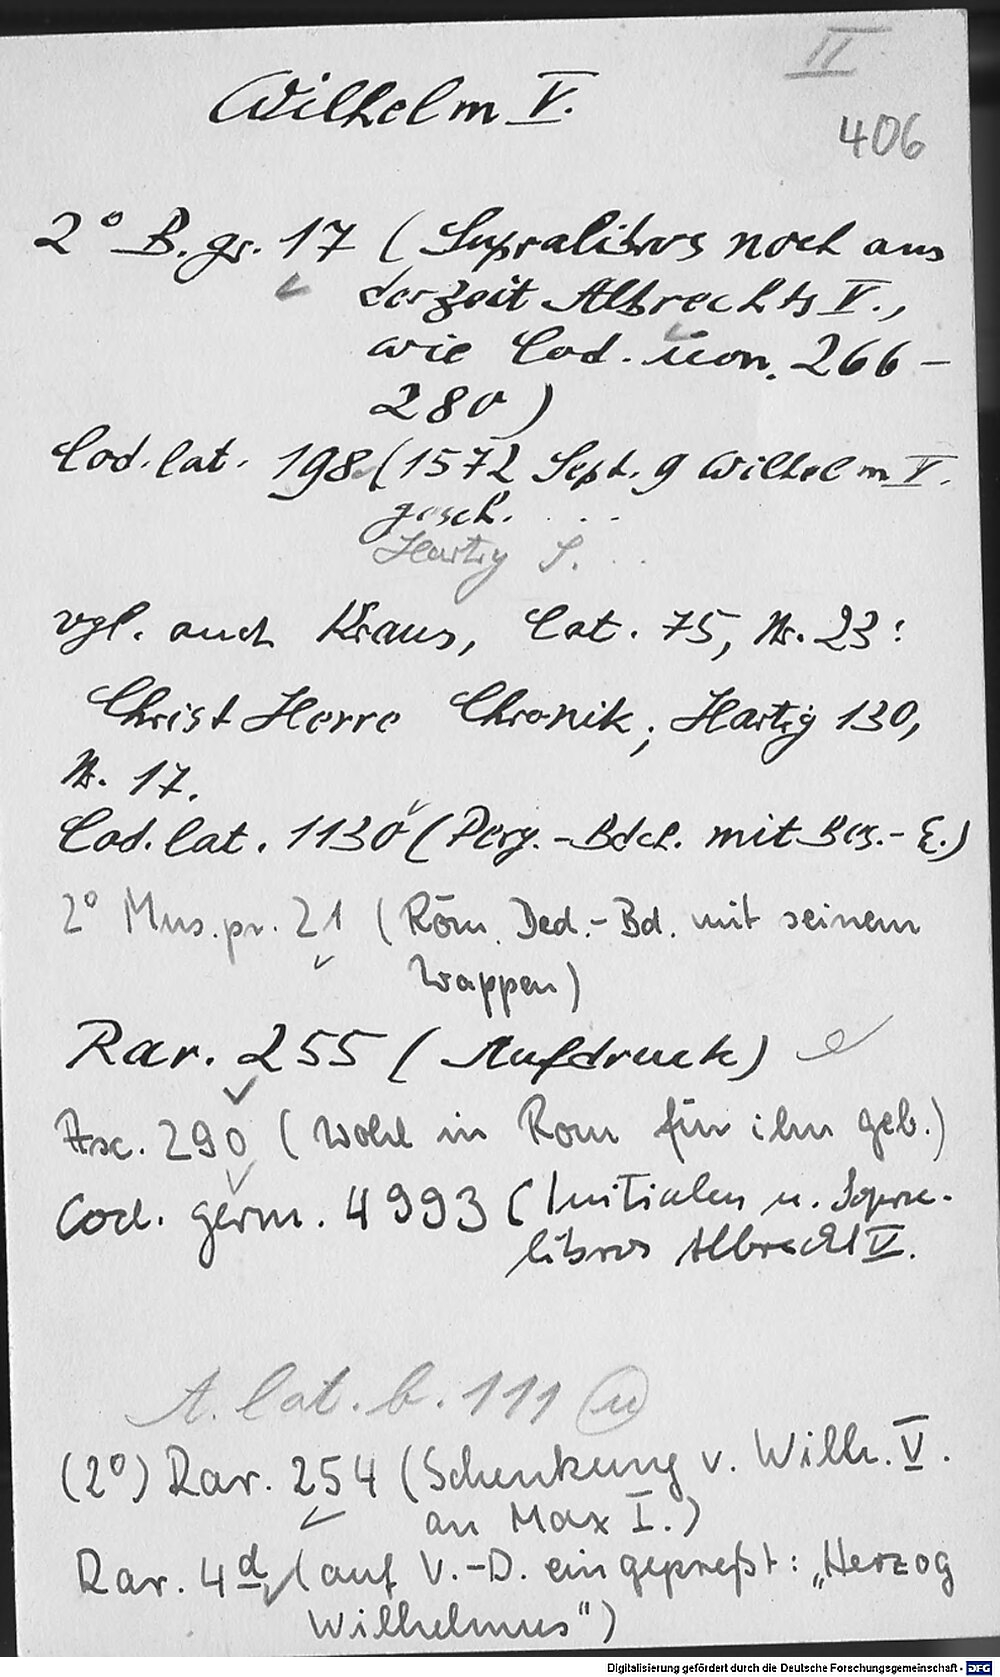 II
Wilhelm V.
406
2° B. gr. 17 (Supralibros noch aus
der Zeit Albrechts V.,
wie Cod. icon. 266–
280)
Cod. lat. 198 (1572 Sept. 9 Wilhelm V.
gesch. . . .
Hartig S. . .
vgl. auch Kraus, Cat. 75, Nr. 23:
Christ Herre Chronik; Hartig 130,
Nr. 17.
Cod. lat. 1130 (Perg.-Bdch. mit Bes.-E.)
2° Mus. pr. 21 (Röm. Ded.-Bd. mit seinem
Wappen)
Rar. 255 (Aufdruck)
Asc. 290 (wohl in Rom für ihn geb.)
Cod. germ. 4993 (Initialen u. Supra-
libros Albrecht V.
A. lat. b. 111 (u)
(2°) Rar. 254 (Schenkung v. Wilh. V.
an Max I.)
Rar. 4d (auf V.-D. eingepreßt: „Herzog
Wilhelmus")
Digitalisierung gefördert durch die Deutsche Forschungsgemeinschaft - DFG